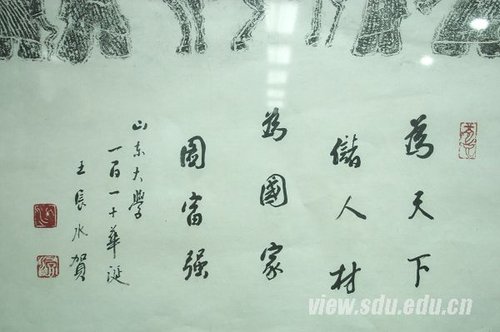 為天下
儲人材
為國家
圖富强
山东大學
一百一十華诞
王長水賀
view.sdu.edu.cn